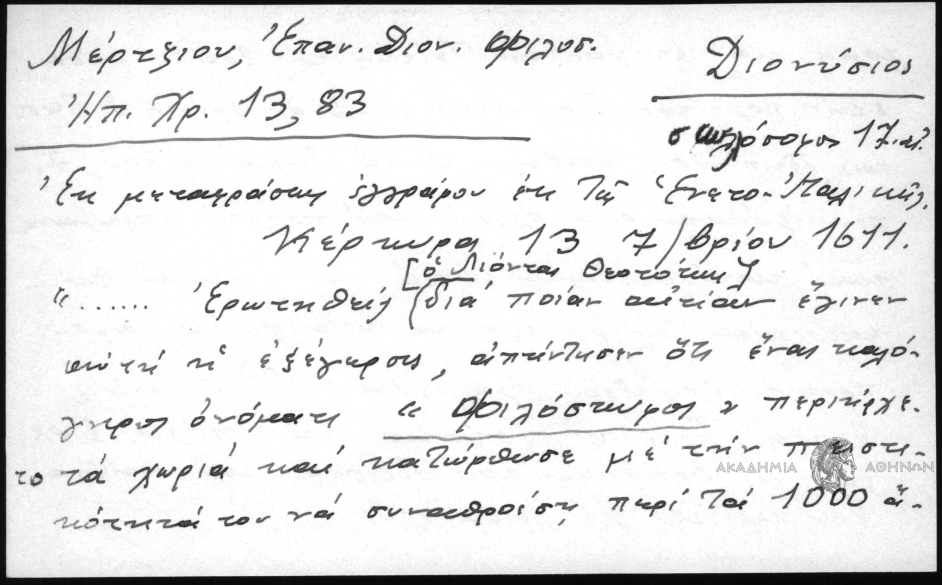 Μέρτζιου, Ἐπαν. Διον. Φιλοσ.
Διονύσιος
Ἠπ. Χρ. 13, 83
σκυλόσοφος 17. αἰ.
Ἐκ μεταφράσεως ἐγγράφου ἐκ τῆς Ἑνετο-Ἰταλικῆς.
Κέρκυρα 13 7/βρίου 1611.
[ὁ Λιόντας Θεοτόκης]
"...... Ἐρωτηθείς (διά ποίαν αἰτίαν ἔγινεν
αὐτή ἡ ἐξέγερσις, ἀπήντησεν ὅτι ἕνας καλό-
γηρος ὀνόματι "Φιλόστυφος" περιήρχε-
το τά χωριά καί κατώρθωσε μέ τήν πειστι-
κότητά του νά συναθροίσῃ περί τά 1000 ἄ-
ΑΚΑΔΗΜΙΑ ΑΘΗΝΩΝ